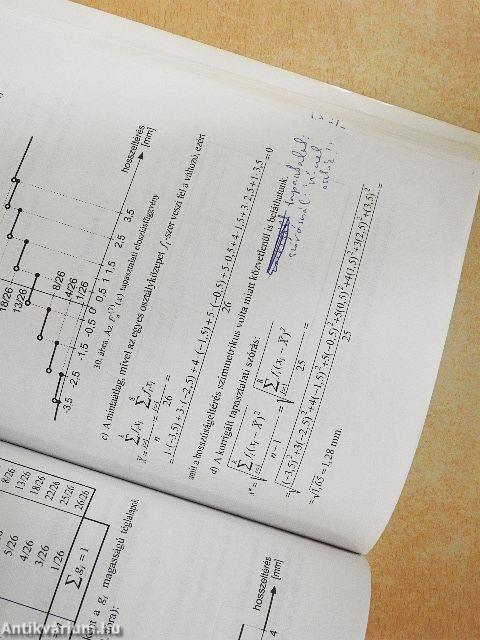 hosszeltérés
[mm]
18/26
13/26
8/26
4/26
1/26
-3,5 -2,5 -1,5 -0,5 0 0,5 1 1,5 2,5 3,5
30. ábra. Az tapasztalati eloszlásfüggvény
c) A mintaátlag, mivel az egyes osztályközepet f_i-szer veszi fel a változó, ezért
= 1·(-3,5)+3·(-2,5)+4·(-1,5)+5·(-0,5)+5·0,5+4·1,5+3·2,5+1·3,5 = 0
26
ami a hosszúságeltérés szimmetrikus volta miatt közvetlenül is beláthattunk.
d) A korrigált tapasztalati szórás:
n-1
25
= √((-3,5)²+3(-2,5)²+4(-1,5)²+5(-0,5)²+5(0,5)²+4(1,5)²+3(2,5)²+(3,5)²) =
25
= √1,65 = 1,28 mm.
8/26
13/26
18/26
22/26
25/26
26/26
5/26
4/26
3/26
1/26
∑ g_i = 1
a g_i magasságú téglalapot
hosszeltérés
[mm]
4
Antikvárium.hu